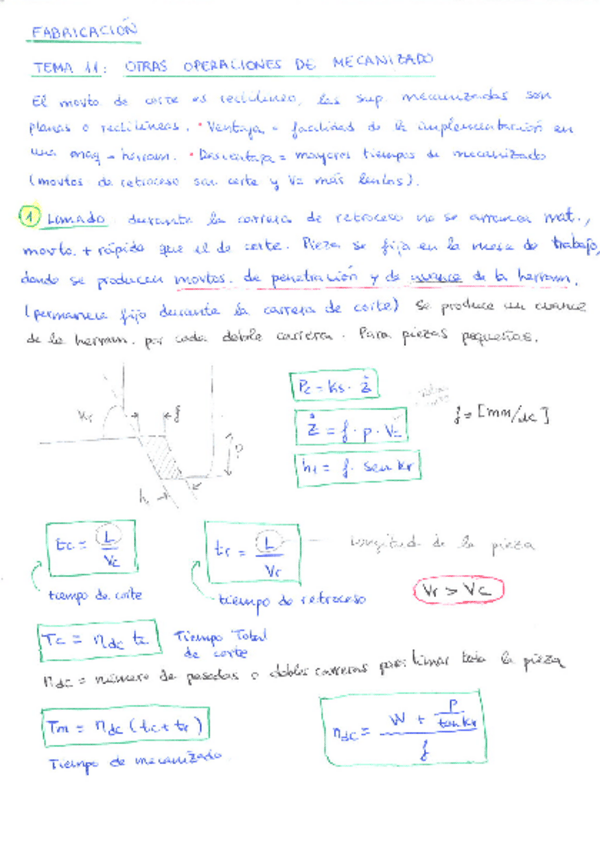 FABRICACIÓN
TEMA 11: OTRAS OPERACIONES DE MECANIZADO
El movto de corte es rectilíneo, las sup. mecanizadas son
planas o rectilíneas. * Ventaja = facilidad de la implementación en
una maq-herram. * Desventaja = mayores tiempos de mecanizado
(movtos de retroceso sin corte y Vc más lentos).
① LIMADO: durante la carrera de retroceso no se arranca mat.,
movto. + rápido que el de corte. Pieza se fija en la mesa de trabajo,
donde se producen movtos. de penetración y de avance de la herram.
(permanece fijo durante la carrera de corte) Se produce un avance
de la herram. por cada doble carrera. Para piezas pequeñas.
Kr
f
P
h1
Pc = Ks · Ż
Ż = f · p · Vc
f = [mm/dc]
h1 = f · sen Kr
tc = L / Vc
tr = L / Vr
Longitud de la pieza
tiempo de corte
tiempo de retroceso
Vr > Vc
Tc = ndc tc
Tiempo Total
de corte
ndc = número de pasadas o dobles carreras para limar toda la pieza
Tm = ndc (tc + tr)
ndc = (W + P / tan Kr) / f
Tiempo de mecanizado